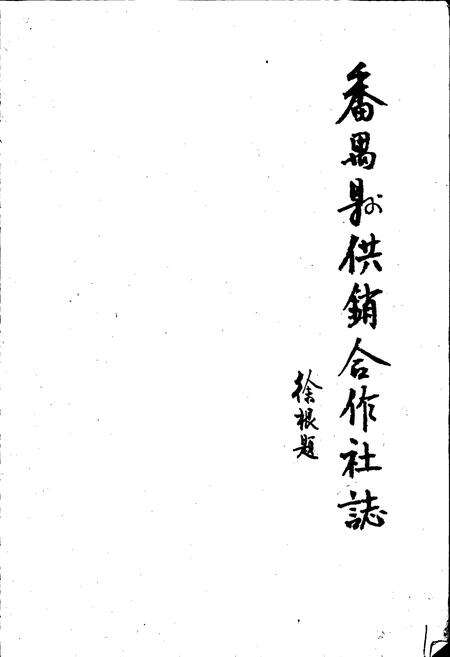 番禺县供銷合作社誌
徐根题